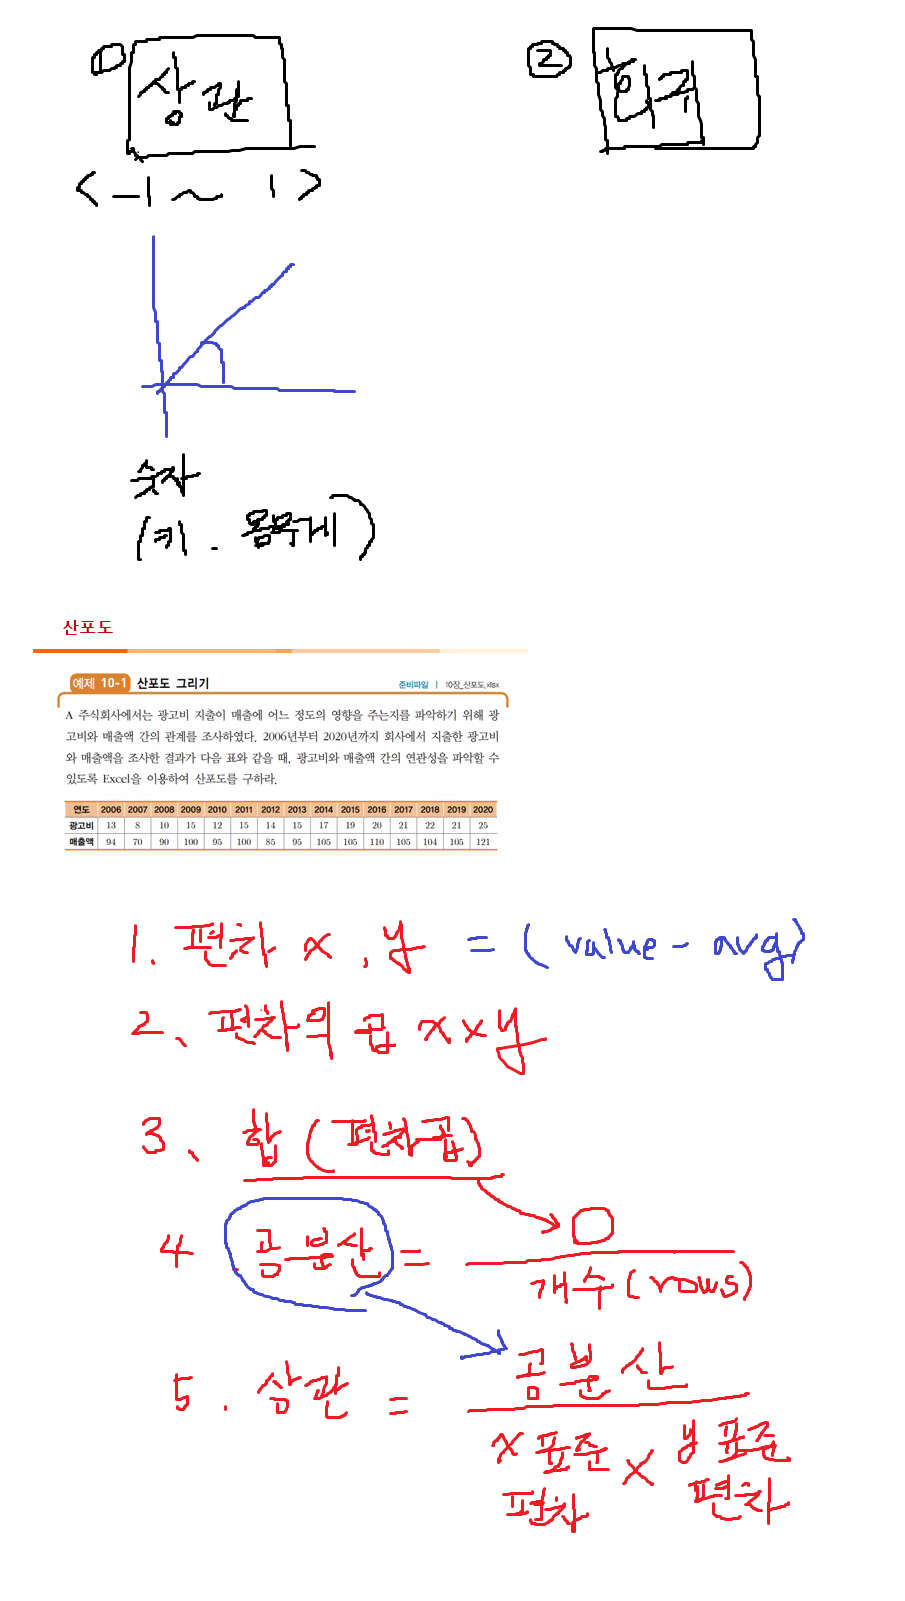 ① 상관
② 회귀
< -1 ~ 1 >
숫자
(키. 몸무게)
산포도
예제 10-1 산포도 그리기 준비파일 | 10장_산포도.xlsx
A 주식회사에서는 광고비 지출이 매출에 어느 정도의 영향을 주는지를 파악하기 위해 광
고비와 매출액 간의 관계를 조사하였다. 2006년부터 2020년까지 회사에서 지출한 광고비
와 매출액을 조사한 결과가 다음 표와 같을 때, 광고비와 매출액 간의 연관성을 파악할 수
있도록 Excel을 이용하여 산포도를 구하라.
연도 2006 2007 2008 2009 2010 2011 2012 2013 2014 2015 2016 2017 2018 2019 2020
광고비 13 8 10 15 12 15 14 15 17 19 20 21 22 21 25
매출액 94 70 90 100 95 100 85 95 105 105 110 105 104 105 121
1. 편차 x, y = (value - avg)
2. 편차의 곱 x × y
3. 합 (편차곱)
4 공분산 =
개수 (rows)
5. 상관 =
공분산
x 표준편차 × y 표준편차